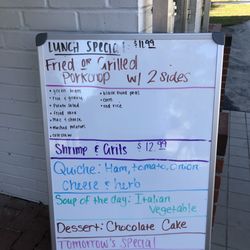 LUNCH SPECIAL: $11.99
Fried or Grilled
Porkchop w/ 2 sides
• green beans
• black eyed peas
• rice & gravy
• corn
• potato salad
• red rice
• fried okra
• mac & cheese
• mashed potatoes
• coleslaw
Shrimp & Grits $12.99
Quiche: Ham, tomato, Onion
cheese & herb
Soup of the day: Italian
Vegetable
Dessert: Chocolate Cake
TOMORROW'S SPECIAL